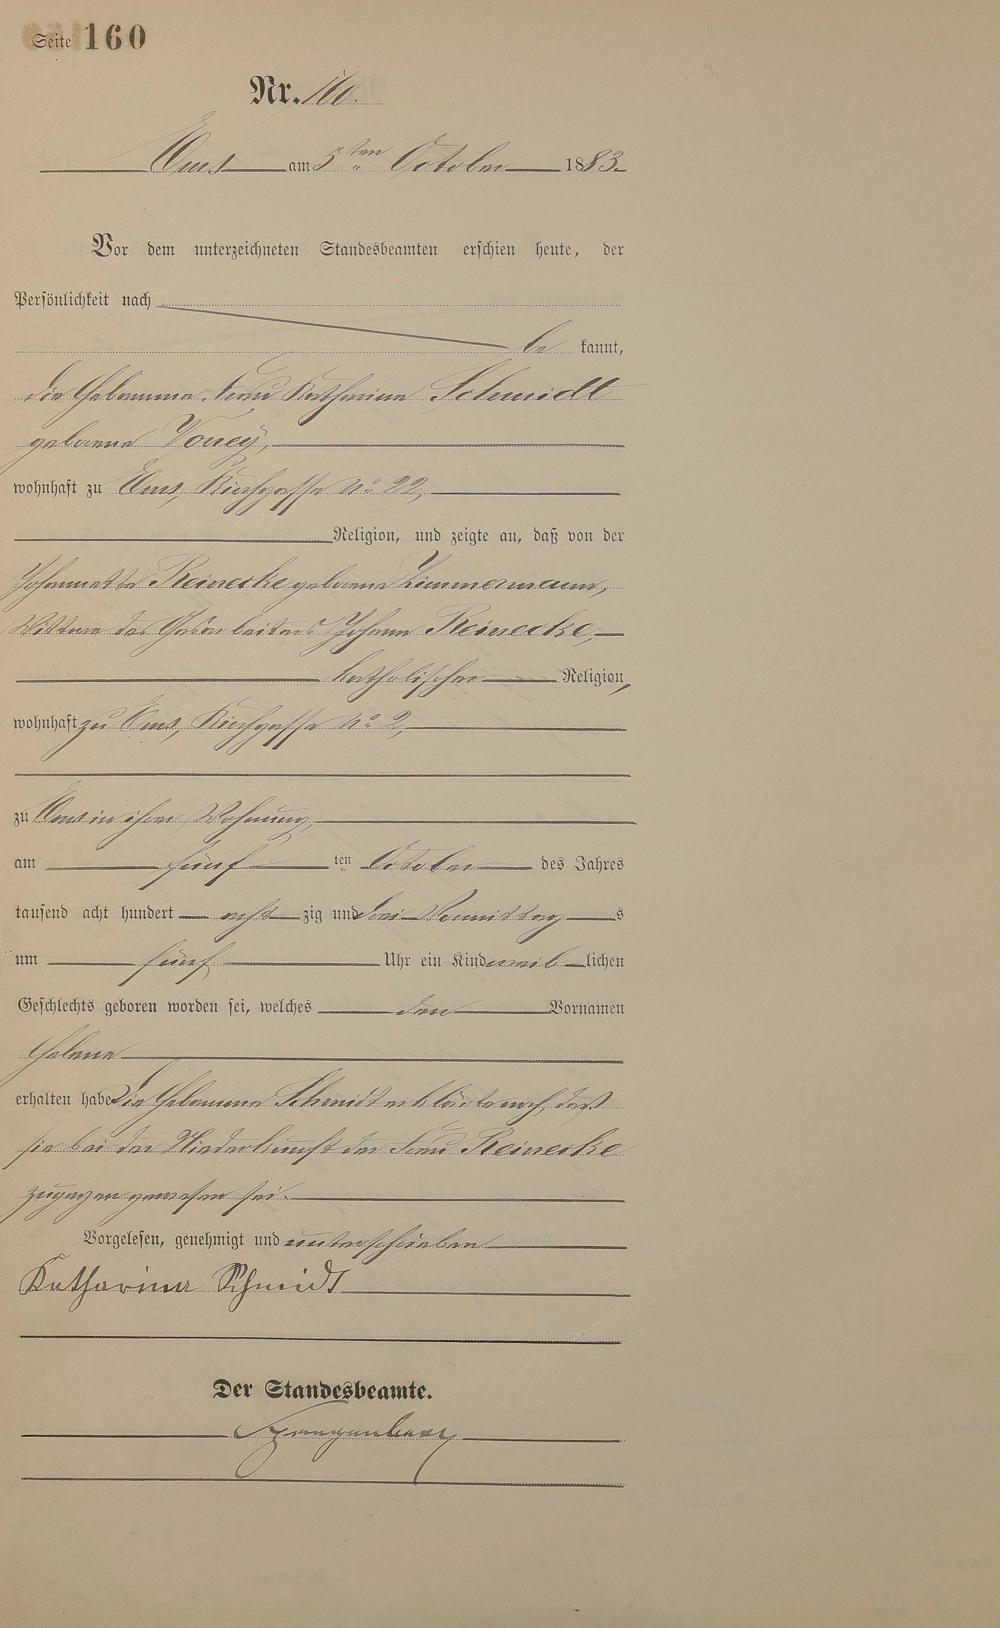 Seite 160
Nr. 160.
Ems am 5ten October 1883.
Vor dem unterzeichneten Standesbeamten erschien heute, der
Persönlichkeit nach
be kannt,
die Hebamme Frau Katharina Schmidt
geborene
wohnhaft zu Ems, Kirchgasse No 22,
Religion, und zeigte an, daß von der
Johannette Reinecke geborene Zimmermann,
Wittwe des Johann Reinecke,
katholischer Religion,
wohnhaft zu Ems, Kirchgasse No 2,
zu Ems in ihrer Wohnung,
am fünf ten October des Jahres
tausend acht hundert acht zig und drei Vormittag s
um fünf Uhr ein Kind weib lichen
Geschlechts geboren worden sei, welches den Vornamen
Helene
erhalten habe Die Hebamme Schmidt erklärte noch, daß
sie bei der Niederkunft der Frau Reinecke
zugegen gewesen sei.
Vorgelesen, genehmigt und unterschrieben
Katharina Schmidt
Der Standesbeamte.
Spangenberg